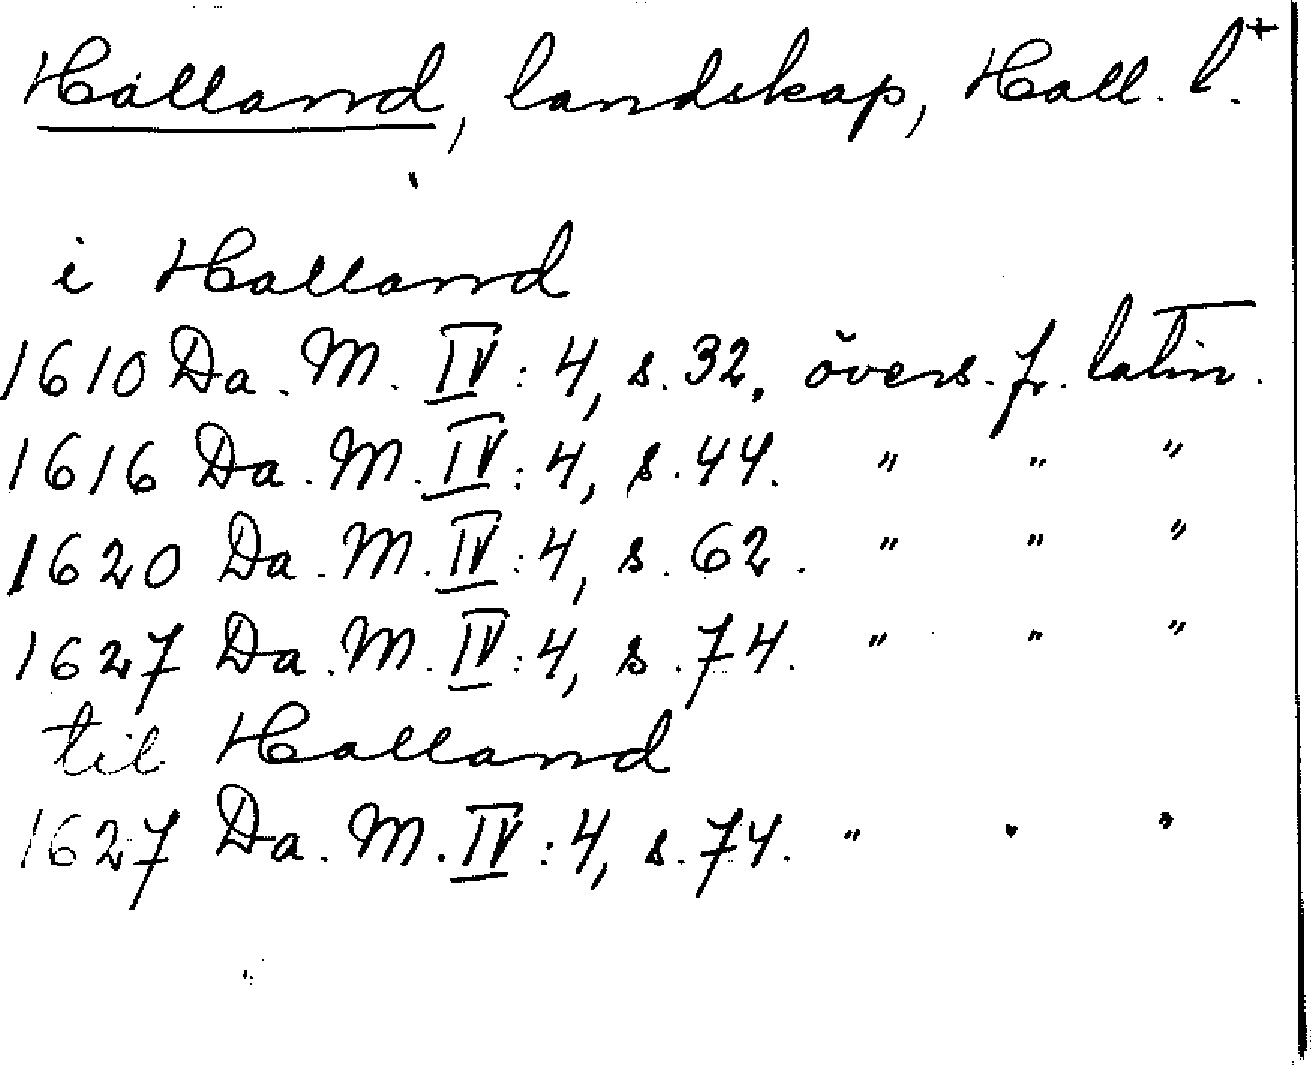 Halland, landskap, Hall. l.+
i Halland
1610 Da. M. IV: 4, s. 32. övers. fr. latin.
1616 Da. M. IV: 4, s. 44. " " "
1620 Da. M. IV: 4, s. 62. " " "
1627 Da. M. IV: 4, s. 74. " " "
til Halland
1627 Da. M. IV: 4, s. 74. " " "